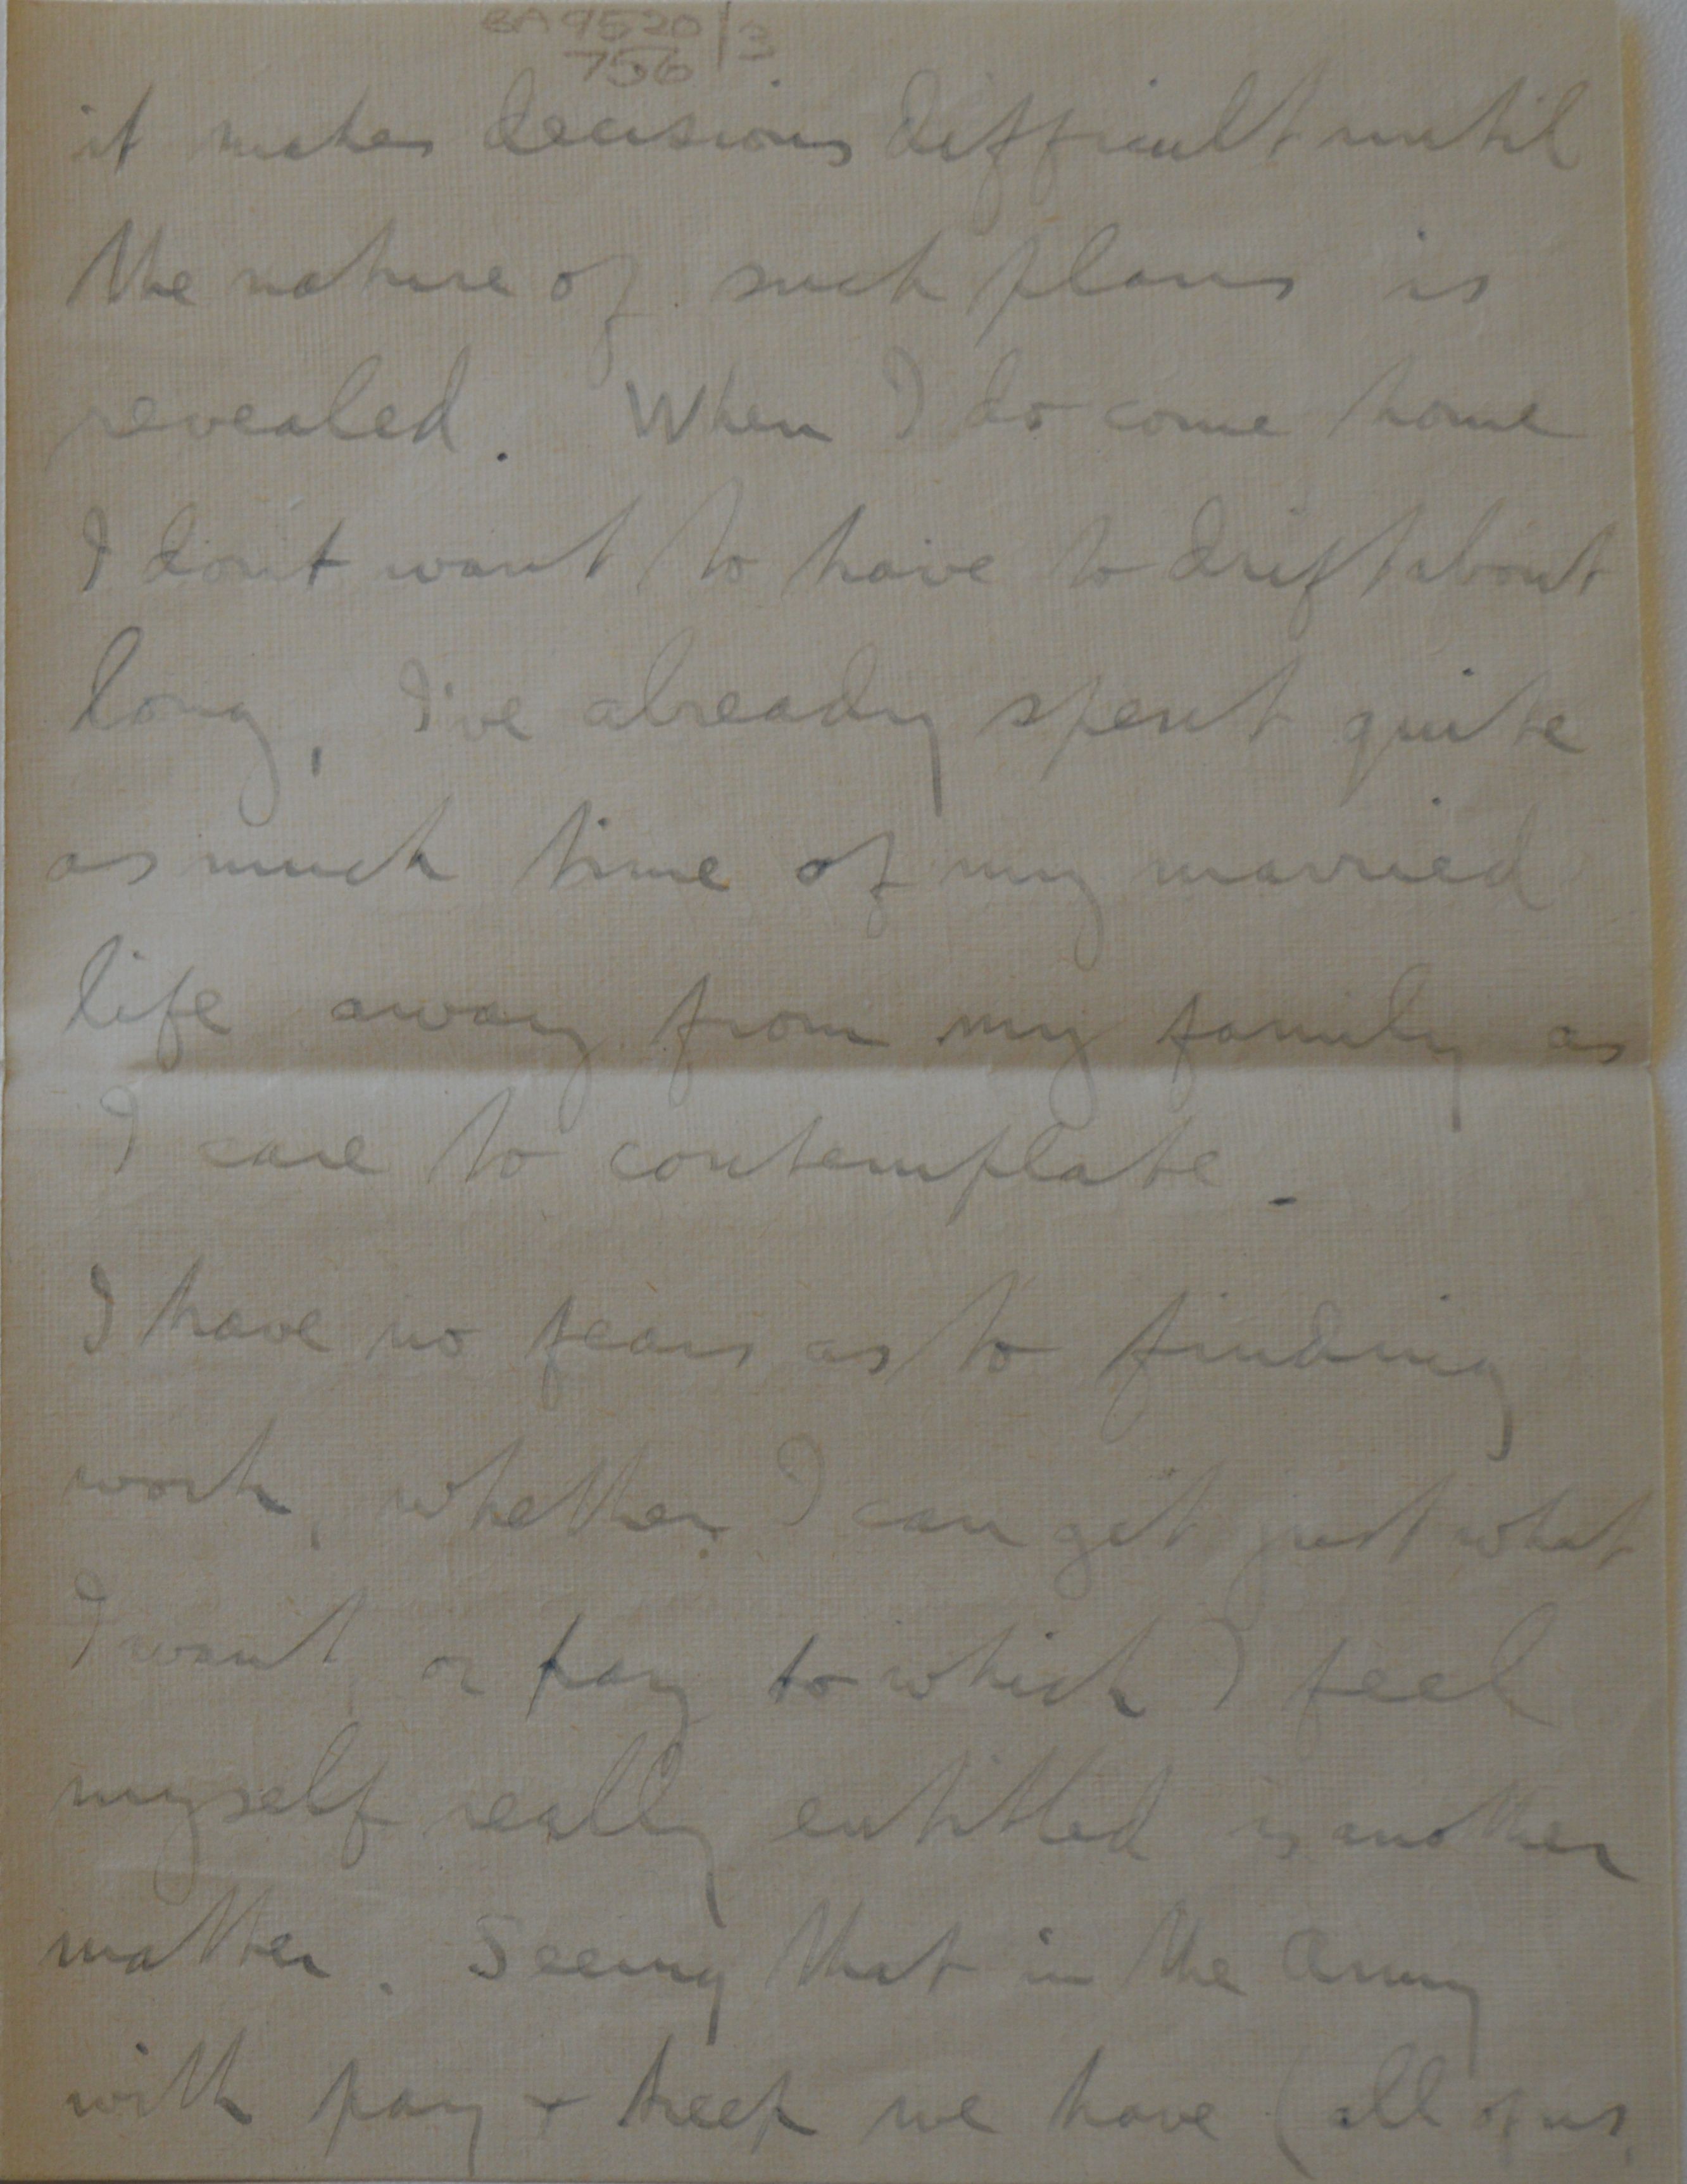 BA9520/3
756
it makes decisions difficult until
the nature of such plans is
revealed. When I do come home
I don't want to have to drift about
long, I've already spent quite
as much time of my married
life away from my family as
I care to contemplate.
I have no fears as to finding
work, whether I can get just what
I want, or pay to which I feel
myself really entitled is another
matter. Seeing that in the Army
with pay + keep we have (all of us,